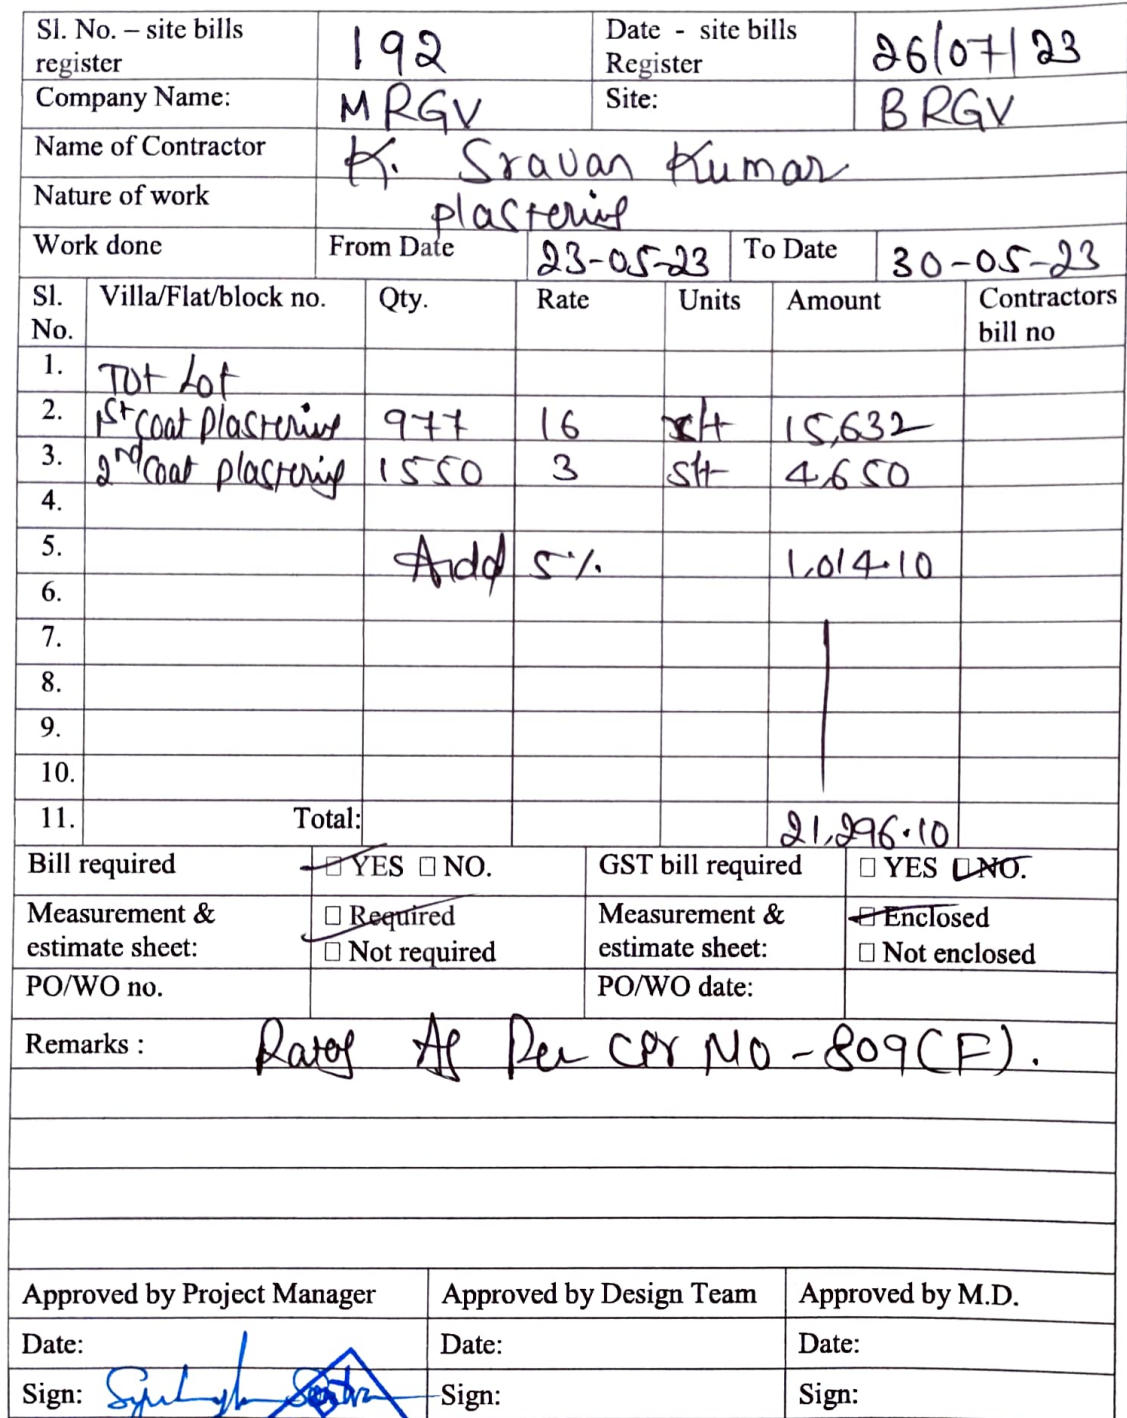 Sl. No. – site bills register 192 Date - site bills Register 26/07/23
Company Name: MRGV Site: BRGV
Name of Contractor K. Sravan Kumar
Nature of work plastering
Work done From Date 23-05-23 To Date 30-05-23
Sl. No. Villa/Flat/block no. Qty. Rate Units Amount Contractors bill no
1. Tot Lot
2. 1st coat plastering 977 16 sft 15,632
3. 2nd coat plastering 1550 3 sft 4,650
4.
5. Add 5% 1,014.10
6.
7.
8.
9.
10.
11. Total: 21,296.10
Bill required ☐ YES ☐ NO. GST bill required ☐ YES ☐ NO.
Measurement & estimate sheet: ☐ Required ☐ Not required Measurement & estimate sheet: ☐ Enclosed ☐ Not enclosed
PO/WO no. PO/WO date:
Remarks : Rates As Per No - 809(F).
Approved by Project Manager Approved by Design Team Approved by M.D.
Date: Date: Date:
Sign: Sign: Sign: